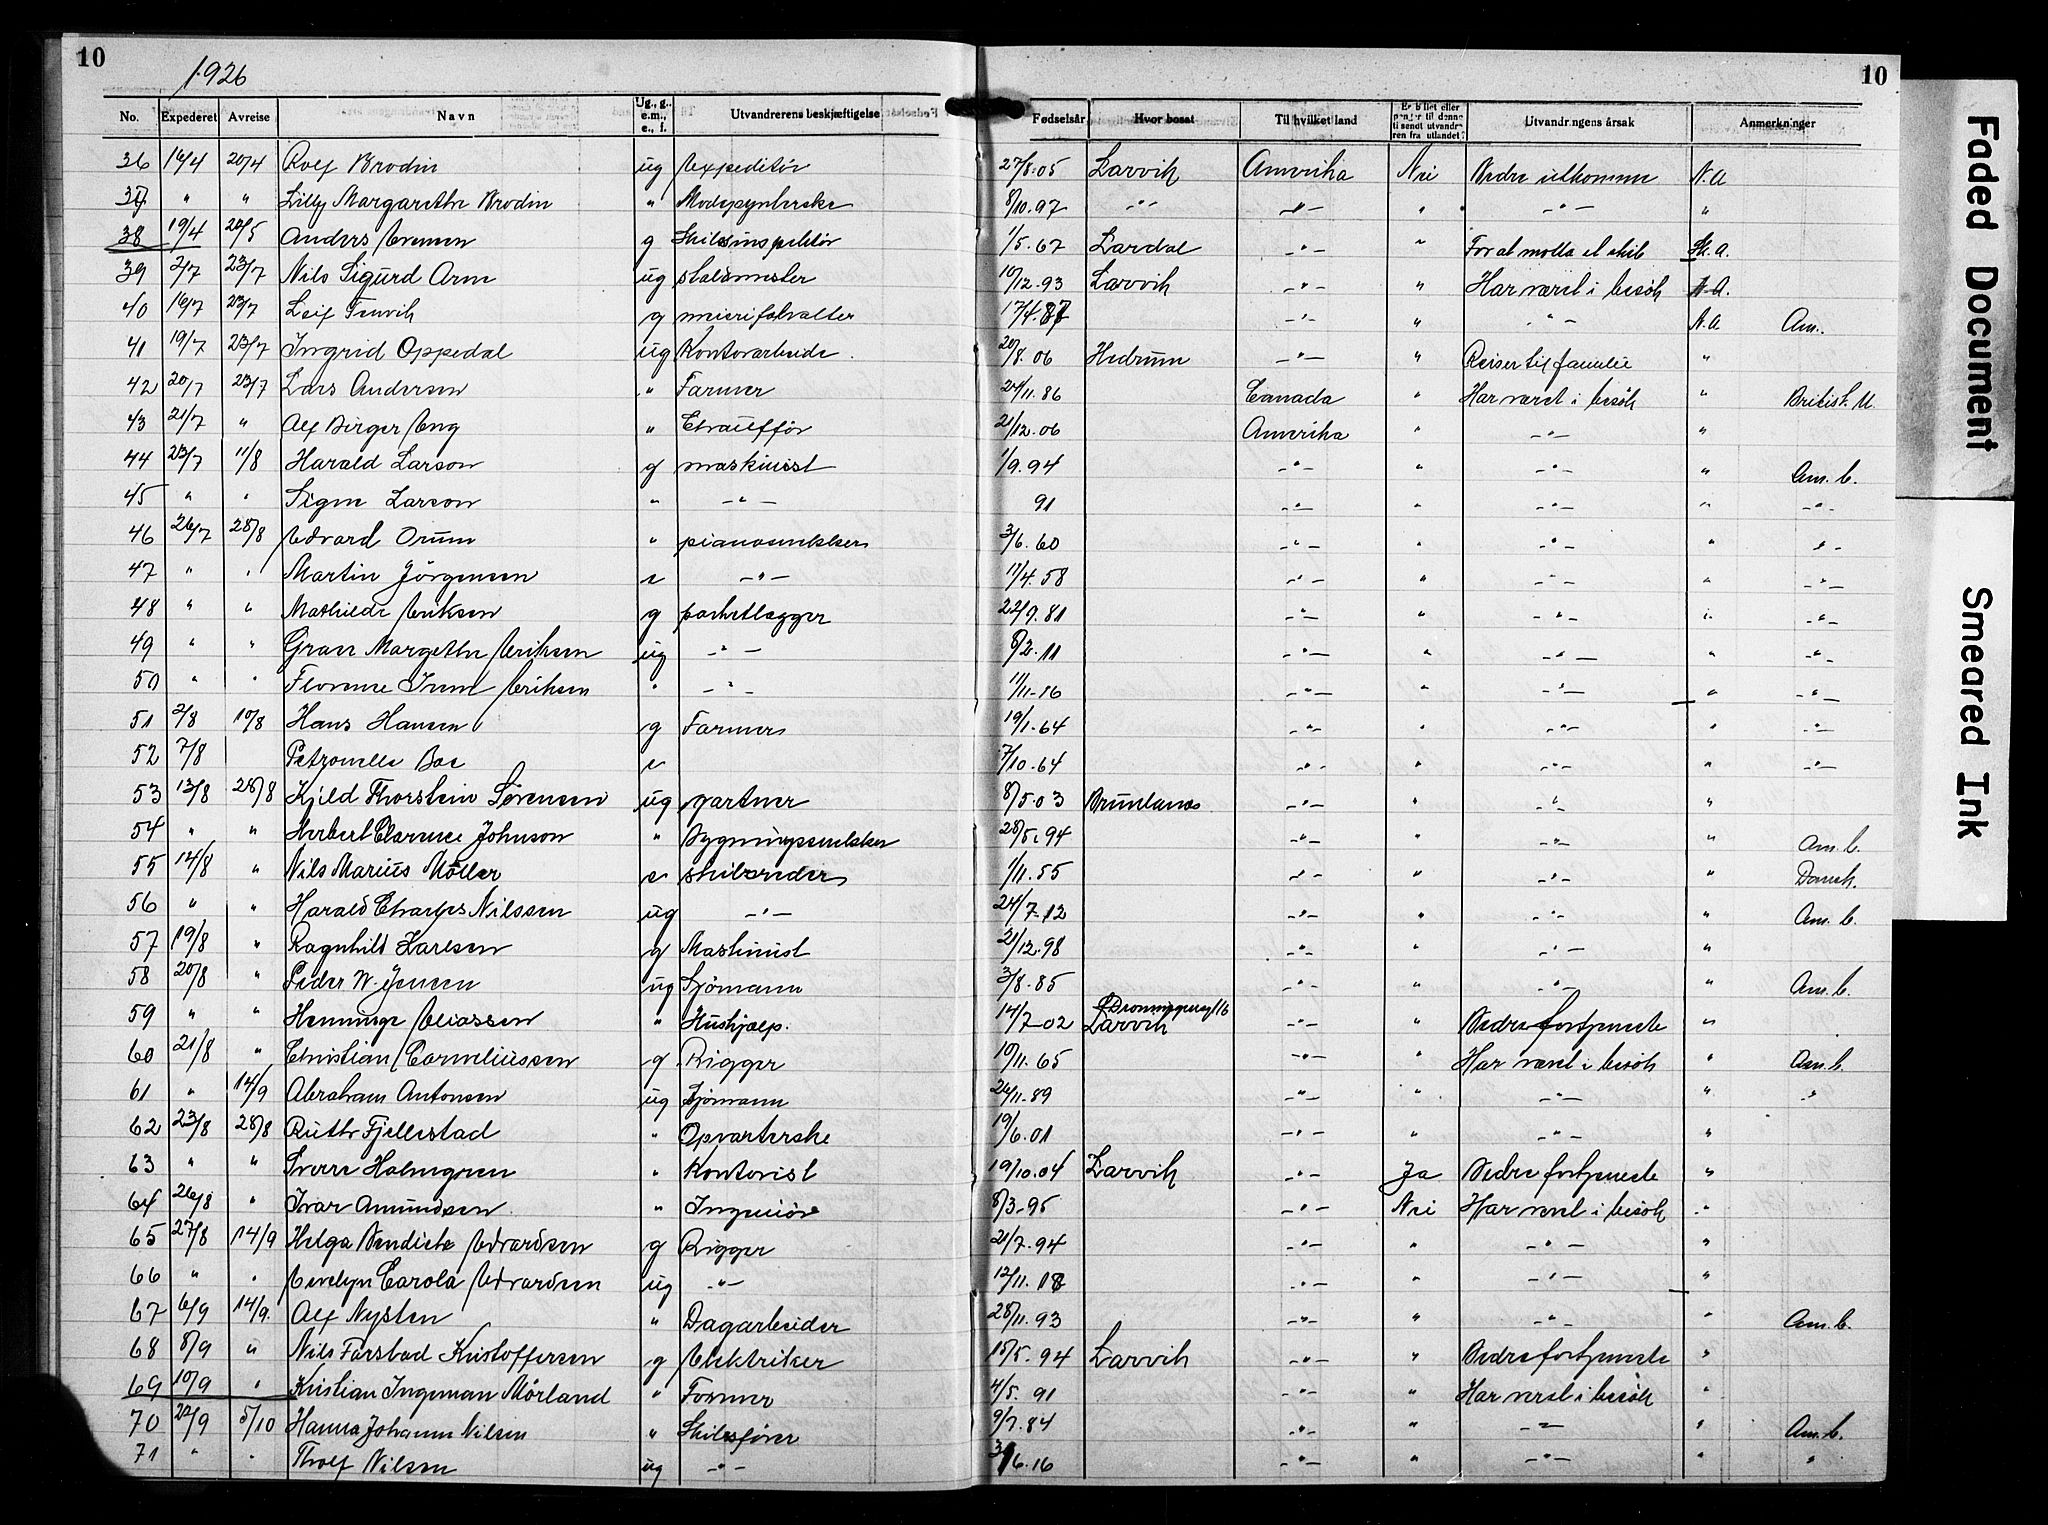 10
1926
10
No. Expederet Avreise Navn Ug., g., e.m., e., f. Utvandrerens beskjæftigelse Fødselsår Hvor bosat Til hvilket land Er billet eller penger til denne tilsendt utvandreren fra utlandet? Utvandringens årsak Anmerkninger
36 16/4 20/4 Rolf Brodin ug Expeditör 27/8.05 Larvik Amerika Nei Bedre utkomme N.A
37 " " Lilly Margarethe Brodin " Modepynterske 8/10.97 -"- -"- " -"- "
38 19/4 20/5 Anders Evensen g Skibsinspektör 1/5.67 Lardal -"- " For at motta et skib St. A.
39 2/7 23/7 Nils Sigurd Arm ug stalsmester 10/12.93 Larvik -"- " Har været i besök N.A.
40 16/7 23/7 Leif Tenvik g meieriforvalter 17/4.87 -"- " -"- N.A Am.
41 19/7 23/7 Ingrid Oppedal ug Kontorarbeide 20/8.06 Hedrum -"- " Reiser til familie "
42 20/7 23/7 Lars Andersen " Farmer 24/11.86 Canada " Har været i besök " British. U.
43 21/7 " Alf Birger Eng " Chaufför 21/12.06 Amerika " -"- "
44 23/7 11/8 Harald Larson g maskinist 1/9.94 -"- " -"- " Am. b.
45 " " Signe Larson " -"- 91 -"- " -"- " -"-
46 26/7 28/8 Edvard Orum " pianosnekker 3/6.60 -"- " -"- " -"-
47 " " Martin Jörgensen e -"- 11/4.58 -"- " -"- " -"-
48 " " Mathilde Eriksen g parketlegger 22/9.81 -"- " -"- " -"-
49 " " Grace Margethe Eriksen ug -"- 8/2.11 -"- " -"- " -"-
50 " " Florence Irene Eriksen " -"- 11/11-16 -"- " -"- " -"-
51 2/8 10/8 Hans Hansen g Farmer 19/1.64 -"- " -"- " -"-
52 7/8 Petronelle Boe e 7/10.64 -"- " -"- " -"-
53 13/8 28/8 Kjeld Thorstein Sørensen ug gartner 8/5.03 Brunlanes -"- " -"- "
54 " " Herbert Clarence Johnson " Bygningssnekker 28/5.94 -"- " -"- " Am. b.
55 14/8 " Nils Marius Möller e skibsreder 1/11.55 -"- " -"- " Dansk.
56 " " Harald Charles Nilssen ug -"- 24/7-12 -"- " -"- " Am. b.
57 19/8 " Ragnhild Karlsen g Maskinist 21/12.98 -"- " -"- "
58 20/8 " Peder W. Jensen ug Sjömann 3/8.85 -"- " -"- " Am. b.
59 " " Hemminge Eliassen " Hushjælp. 14/7-02 Dronningensg 16 Larvik -"- " Bedre fortjeneste "
60 21/8 " Christian Corneliussen g Rigger 10/11.65 -"- " Har været i besök " Am. b.
61 " 14/9 Abraham Antonsen ug Sjömann 26/11-89 -"- " -"- " "
62 23/8 28/8 Ruth Fjellestad " Opvarterske 19/6.01 -"- " -"- "
63 " " Sverre Holmgren " Kontorist 19/10.04 Larvik -"- Ja Bedre fortjeneste "
64 26/8 " Ivar Amundsen " Ingeniör 8/3-95 -"- Nei Har været i besök "
65 27/8 14/9 Helga Bendicte Edvardsen g Rigger 21/7-94 -"- " -"- "
66 " " Evelyn Carola Edvardsen ug -"- 12/11.18 -"- " -"- "
67 6/9 14/9. Alf Nysten " Dagarbeider 28/11.93 -"- " -"- " Am. b.
68 8/9 " Nils Farstad Kristoffersen g Elektriker 15/5.94 Larvik -"- " Bedre fortjeneste "
69 10/9 " Kristian Ingeman Mörland " Former 4/5.91 -"- " Har været i besök "
70 22/9 5/10 Hanna Johanne Nilsen " Skibsfører 9/7.84 -"- " -"- " Am. b.
71 " " Throlf Nilsen ug -"- 3/6.16 -"- " -"- " "
Faded Document
Smeared Ink